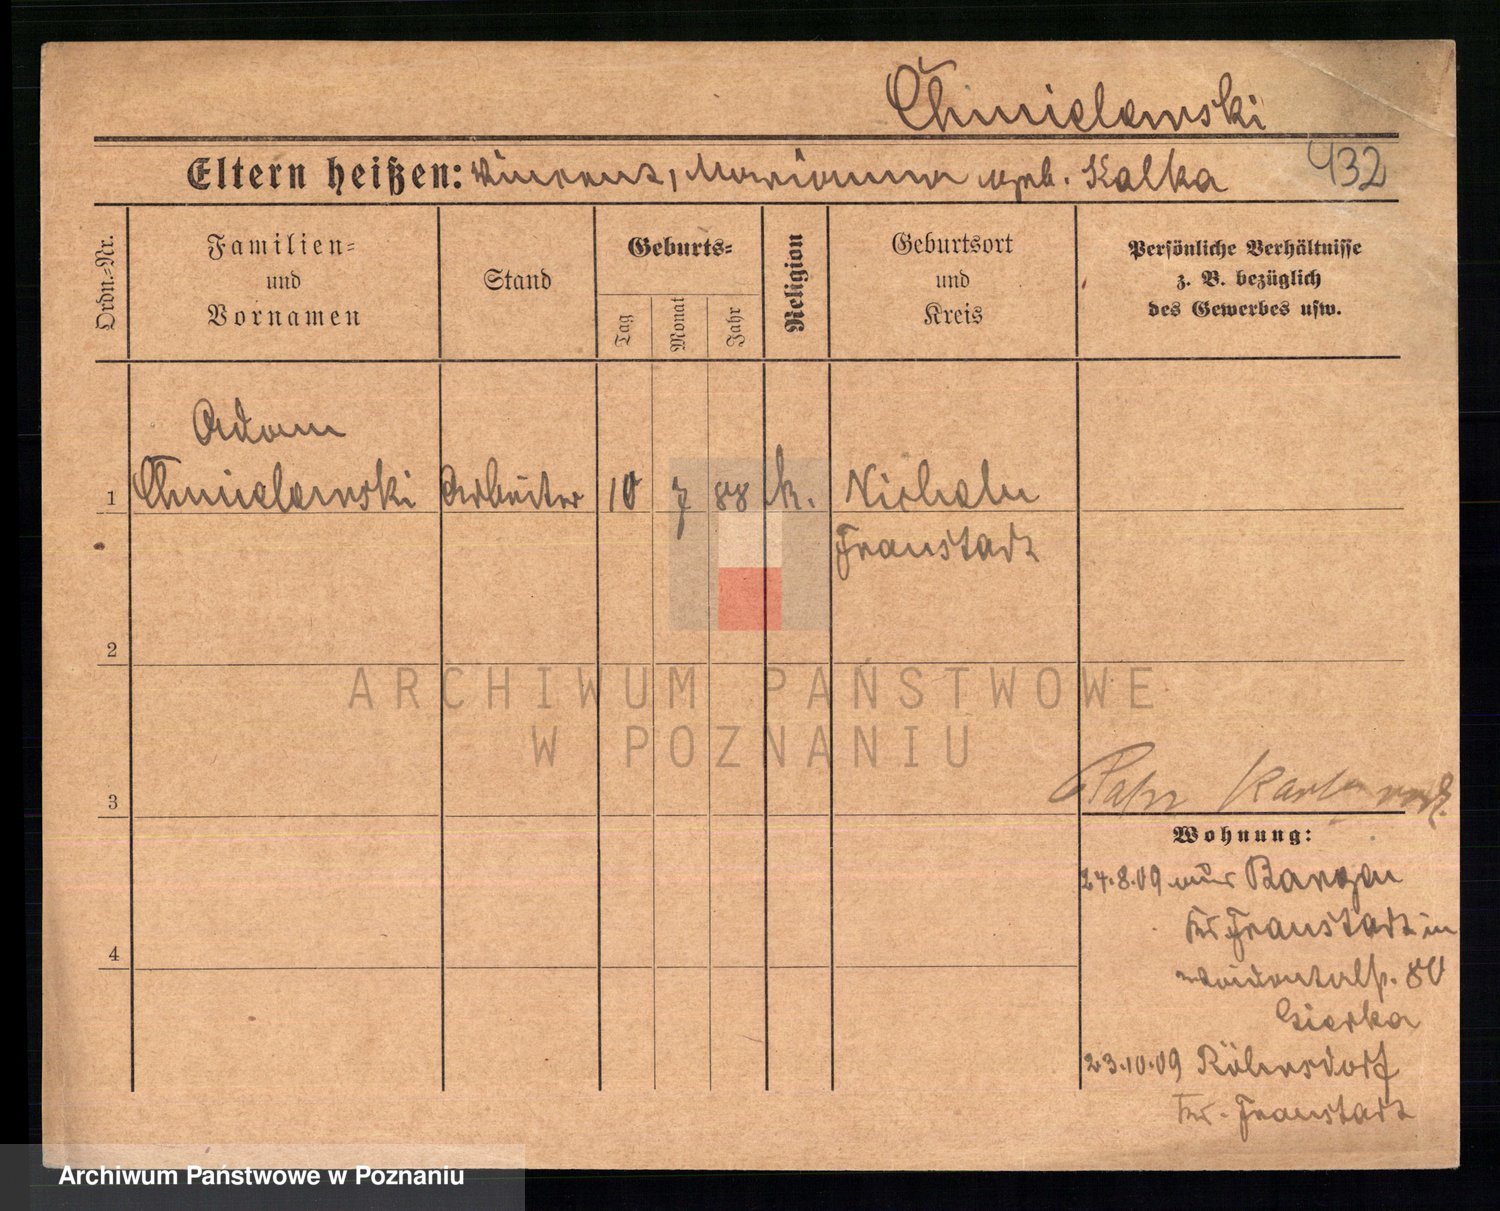 Chmielewski
Eltern heißen: Vincent, Marianna geb. Kalka
432
Ordn.-Nr.
Familien-
und
Vornamen
Stand
Geburts-
Tag
Monat
Jahr
Religion
Geburtsort
und
Kreis
Persönliche Verhältnisse
z. B. bezüglich
des Gewerbes usw.
Adam
1 Chmielewski Arbeiter 10 7 88 k. Nicheln
Fraustadt
2
ARCHIWUM PAŃSTWOWE
W POZNANIU
3
Wohnung:
24.8.09 Bargen
Kr. Fraustadt in
80
Gierka
4
23.10.09 Röhrsdorf
Kr. Fraustadt
Archiwum Państwowe w Poznaniu